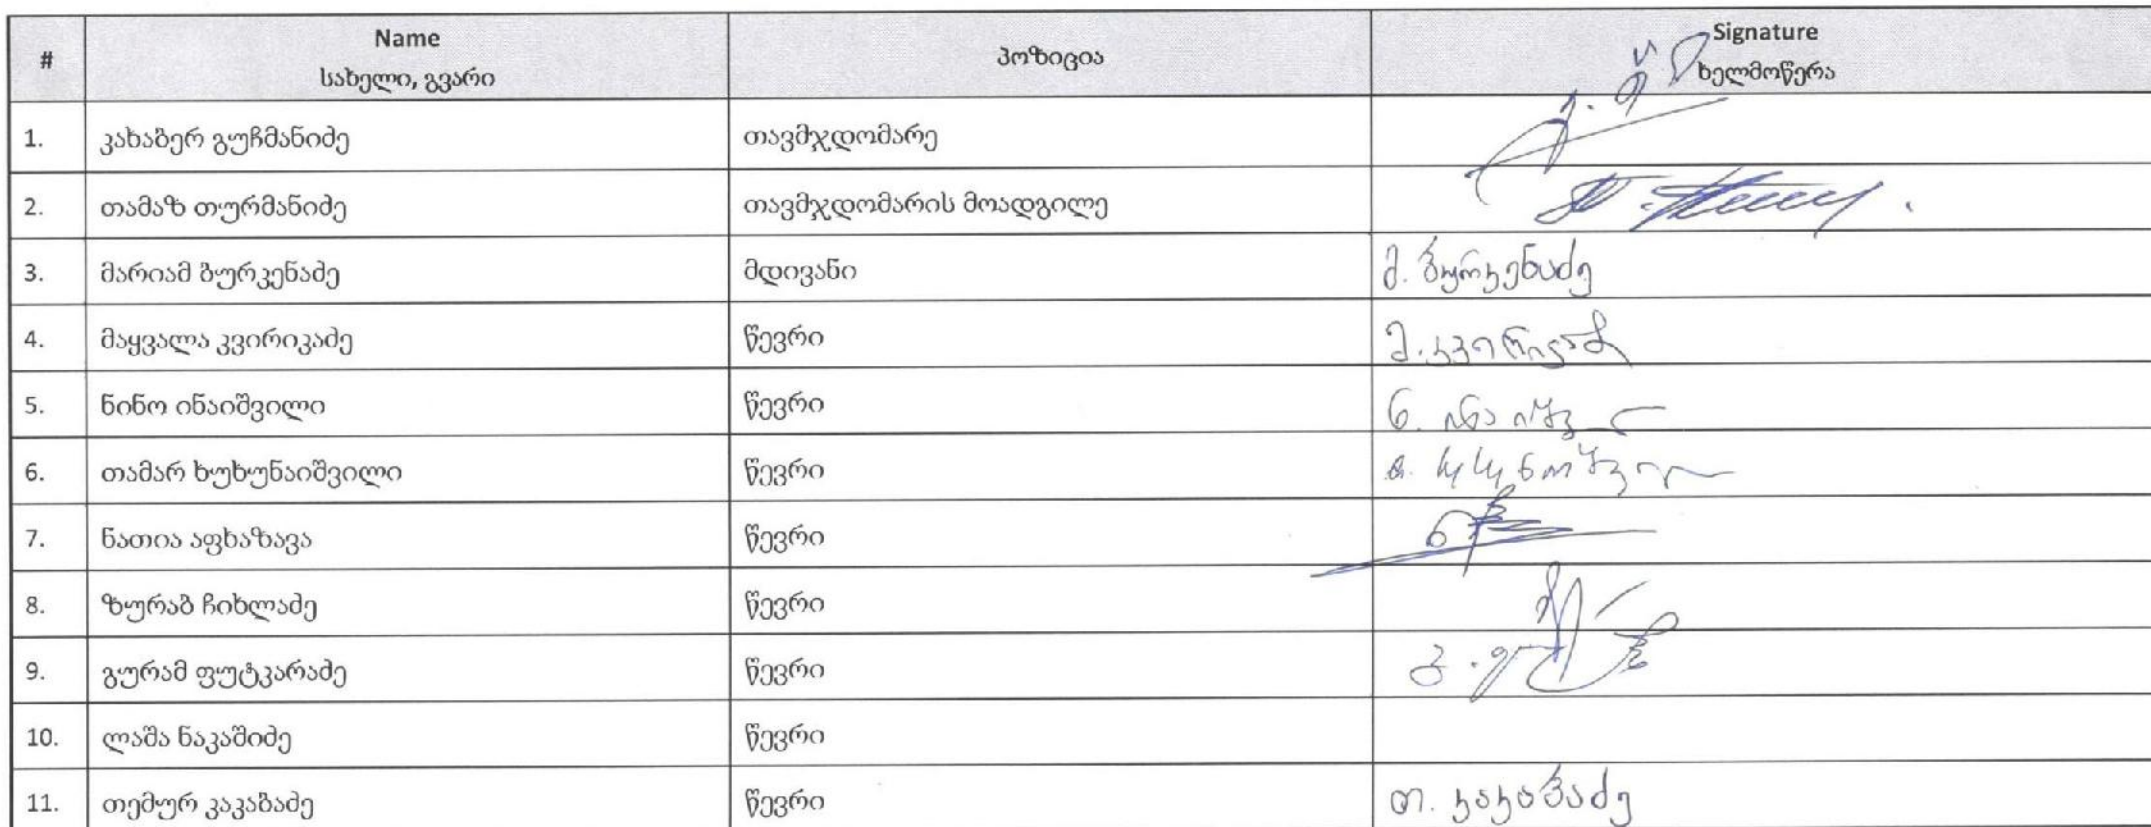 # Name პოზიცია Signature
სახელი, გვარი ხელმოწერა
1. კახაბერ გუჩმანიძე თავმჯდომარე
2. თამაზ თურმანიძე თავმჯდომარის მოადგილე
3. მარიამ ბურკენაძე მდივანი მ. ბურკენაძე
4. მაყვალა კვირიკაძე წევრი
5. ნინო ინაიშვილი წევრი
6. თამარ ხუხუნაიშვილი წევრი
7. ნათია აფხაზავა წევრი
8. ზურაბ ჩიხლაძე წევრი
9. გურამ ფუტკარაძე წევრი
10. ლაშა ნაკაშიძე წევრი
11. თემურ კაკაბაძე წევრი თ. კაკაბაძე